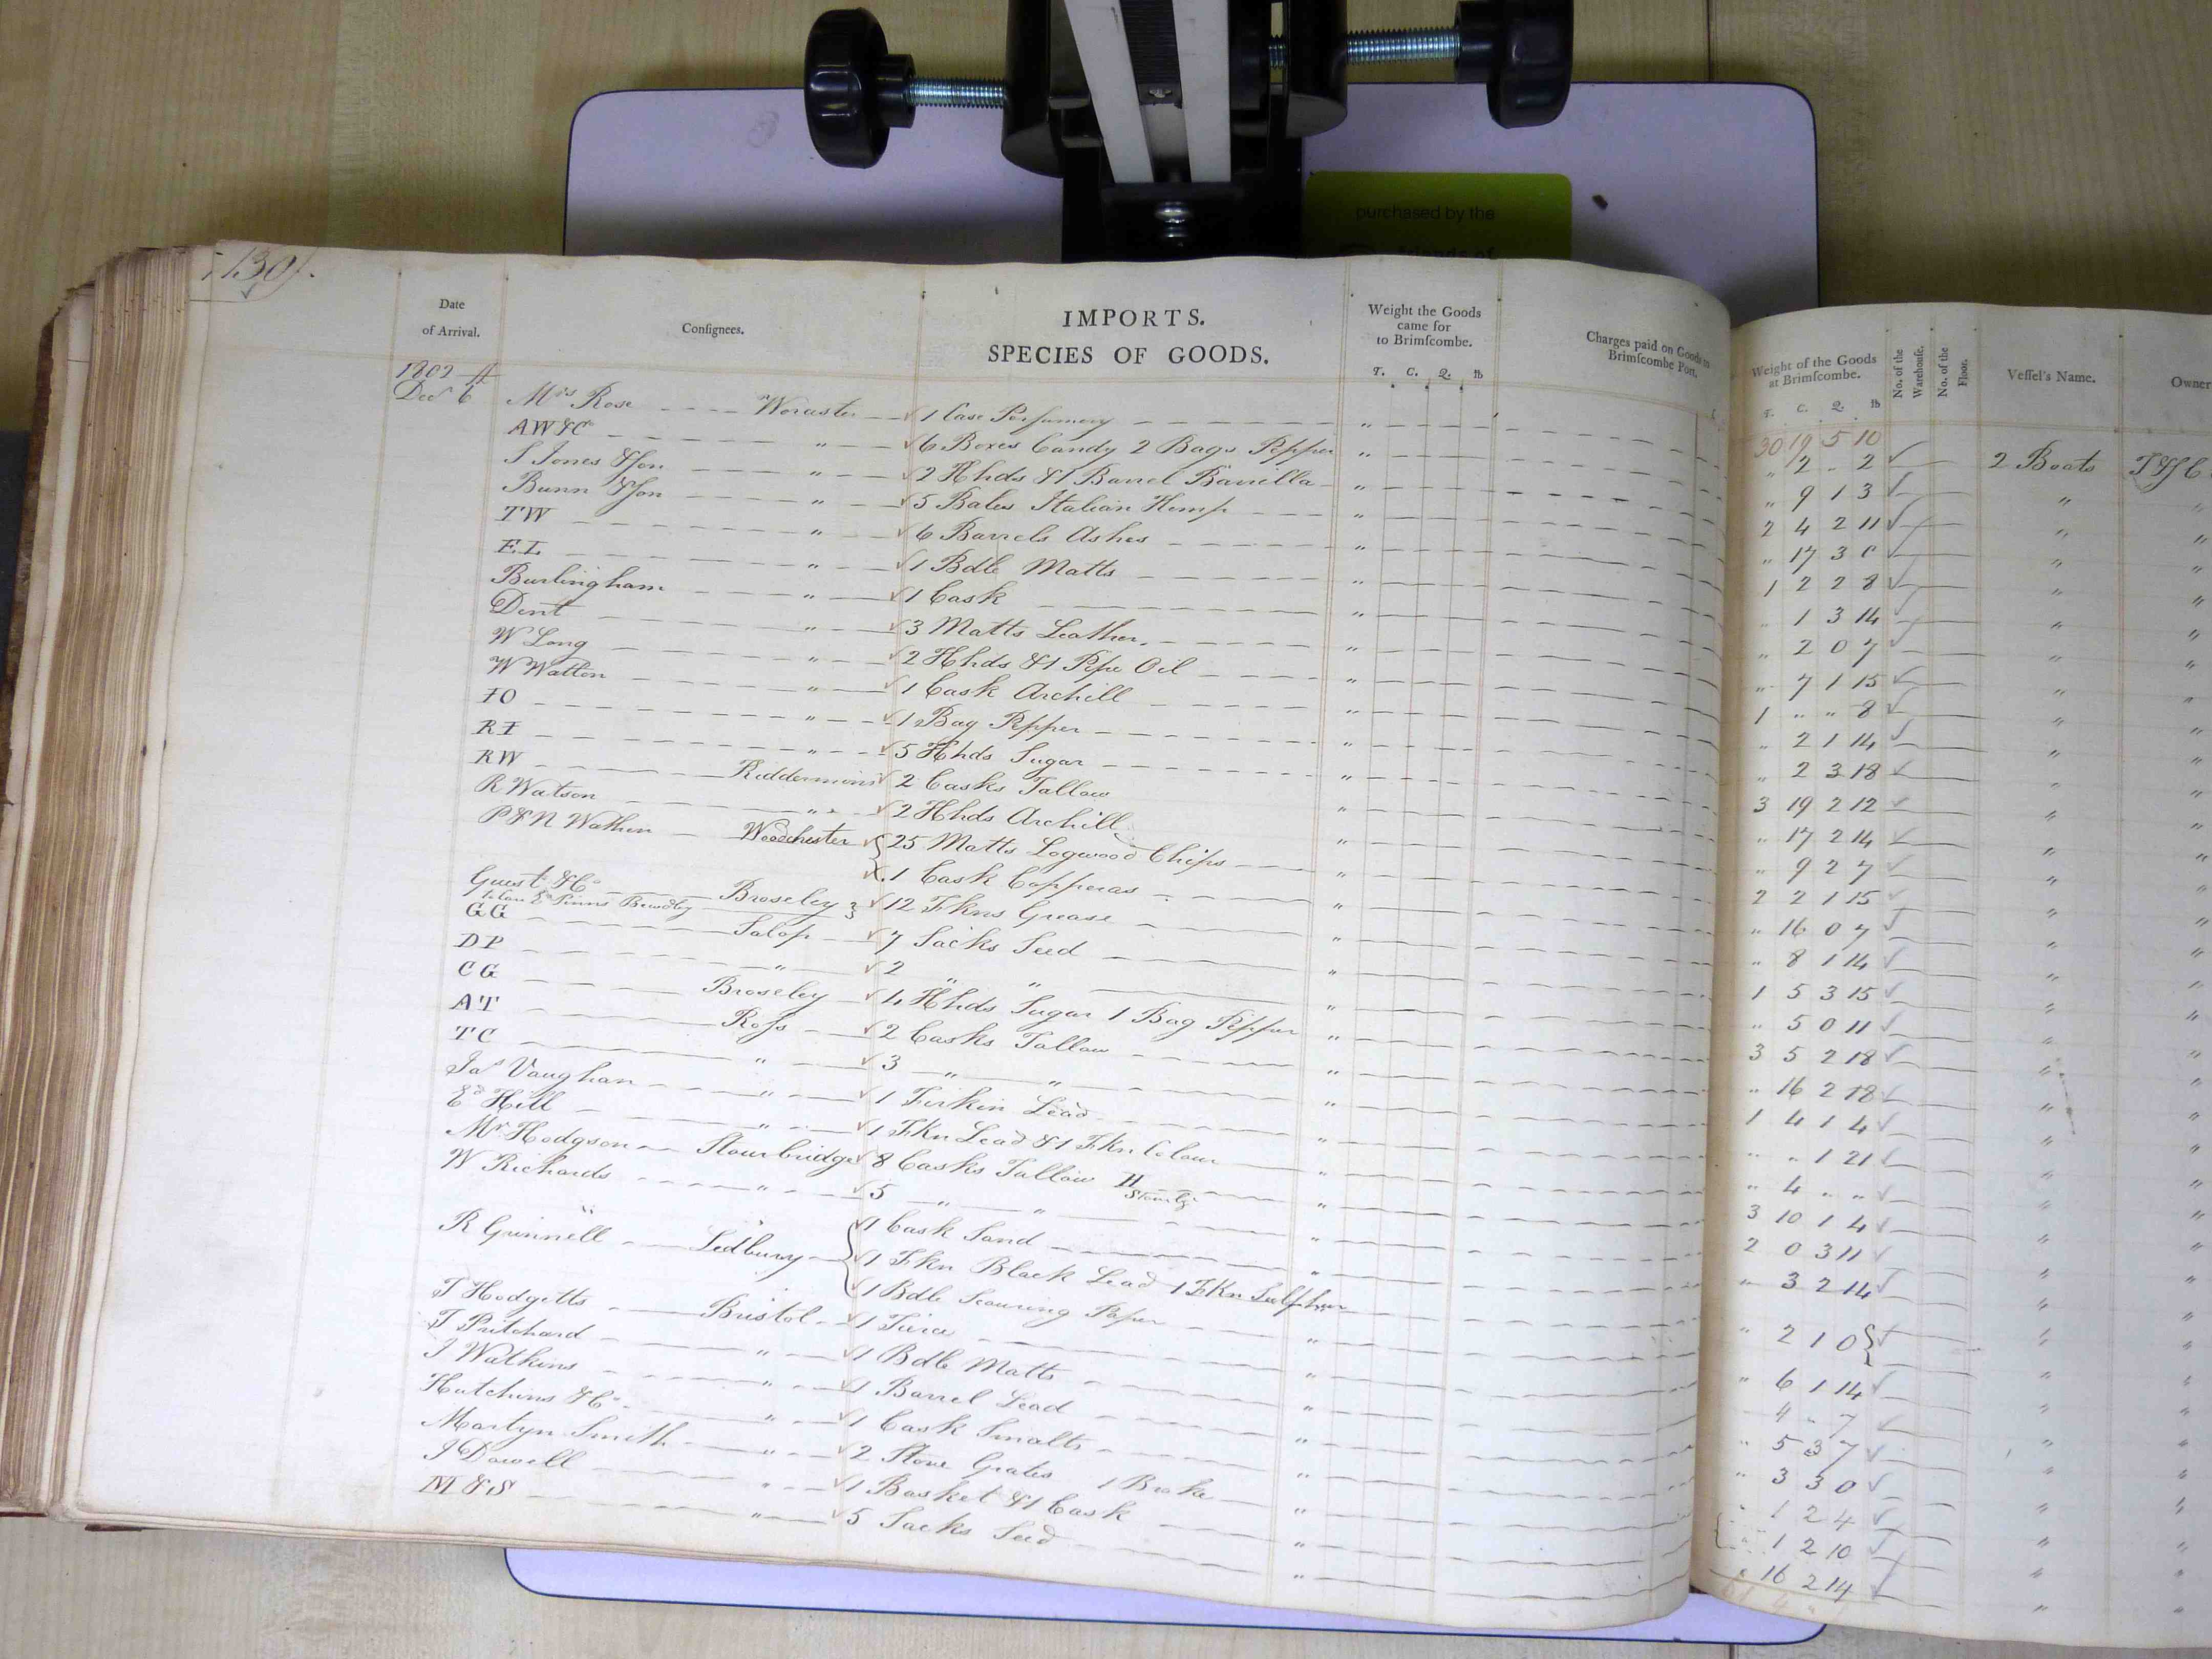 purchased by the
friends of
130
Date of Arrival. Consignees. IMPORTS. SPECIES OF GOODS. Weight the Goods came for to Brimscombe. T. C. Q. lb Charges paid on Goods to Brimscombe Port. Weight of the Goods at Brimscombe. T. C. Q. lb No. of the Warehouse. No. of the Floor. Vessel's Name. Owner
1802
30 19 5 10
Decr 6th Mrs Rose Worcester 1 Case Perfumery " 2 - 2 2 Boats
AW&Co " 6 Boxes Candy 2 Bags Pepper " 9 1 3 "
S Jones & Son " 2 Hhds & 1 Barrel Barrilla 2 4 2 11 "
Bunn & Son " 5 Bales Italian Hemp " 17 3 0 "
TW " 6 Barrels Ashes 1 2 2 8 "
EL " 1 Bdle Matts " 1 3 14 "
Burlingham " 1 Cask " 2 0 7 "
Dent " 3 Matts Leather " 7 1 15 "
W Long " 2 Hhds & 1 Pipe Oil 1 " " 8 "
W Watton " 1 Cask Archill " 2 1 14 "
IO " 1 Bag Pepper " 2 3 18 "
RI " 5 Hhds Sugar 3 19 2 12 "
RW Kidderminsr 2 Casks Tallow " 17 2 14 "
R Watson " 2 Hhds Archill " 9 2 7 "
P & N Wathen Woodchester 25 Matts Logwood Chips 2 2 1 15 "
1 Cask Copperas " 16 0 7 "
Guest & Co Broseley 12 Fkns Grease " 8 1 14 "
to Care Bewdley
GG Salop 7 Sacks Seed 1 5 3 15 "
DP " 2 " " " 5 0 11 "
CG Broseley 4 Hhds Sugar 1 Bag Pepper 3 5 2 18 "
AT Ross 2 Casks Tallow " 16 2 18 "
TC " 3 " " 1 4 1 4 "
Jas Vaughan " 1 Firkin Lead " " 1 21 "
Ed Hill " 1 Fkn Lead & 1 Fkn Colour " 4 " " "
Mr Hodgson Stourbridge 8 Casks Tallow H Stourbge 3 10 1 4 "
W Richards " 5 " " 2 0 3 11 "
R Grinnell Ledbury 1 Cask Sand " 3 2 14 "
1 Fkn Black Lead 1 Fkn Sulphur
1 Bdle Scouring Paper " 2 1 0 "
J Hodgetts Bristol 1 Tierce " 6 1 14 "
T Pritchard " 1 Bdle Matts 4 " 7 "
J Watkins " 1 Barrel Lead " 5 3 7 "
Hutchins & Co " 1 Cask Smalts " 3 3 0 "
Martyn Smith " 2 Stove Grates 1 Broke " 1 2 4 "
J Dowell " 1 Basket & 1 Cask " 1 2 10 "
M&S " 5 Sacks Seed " 16 2 14 "